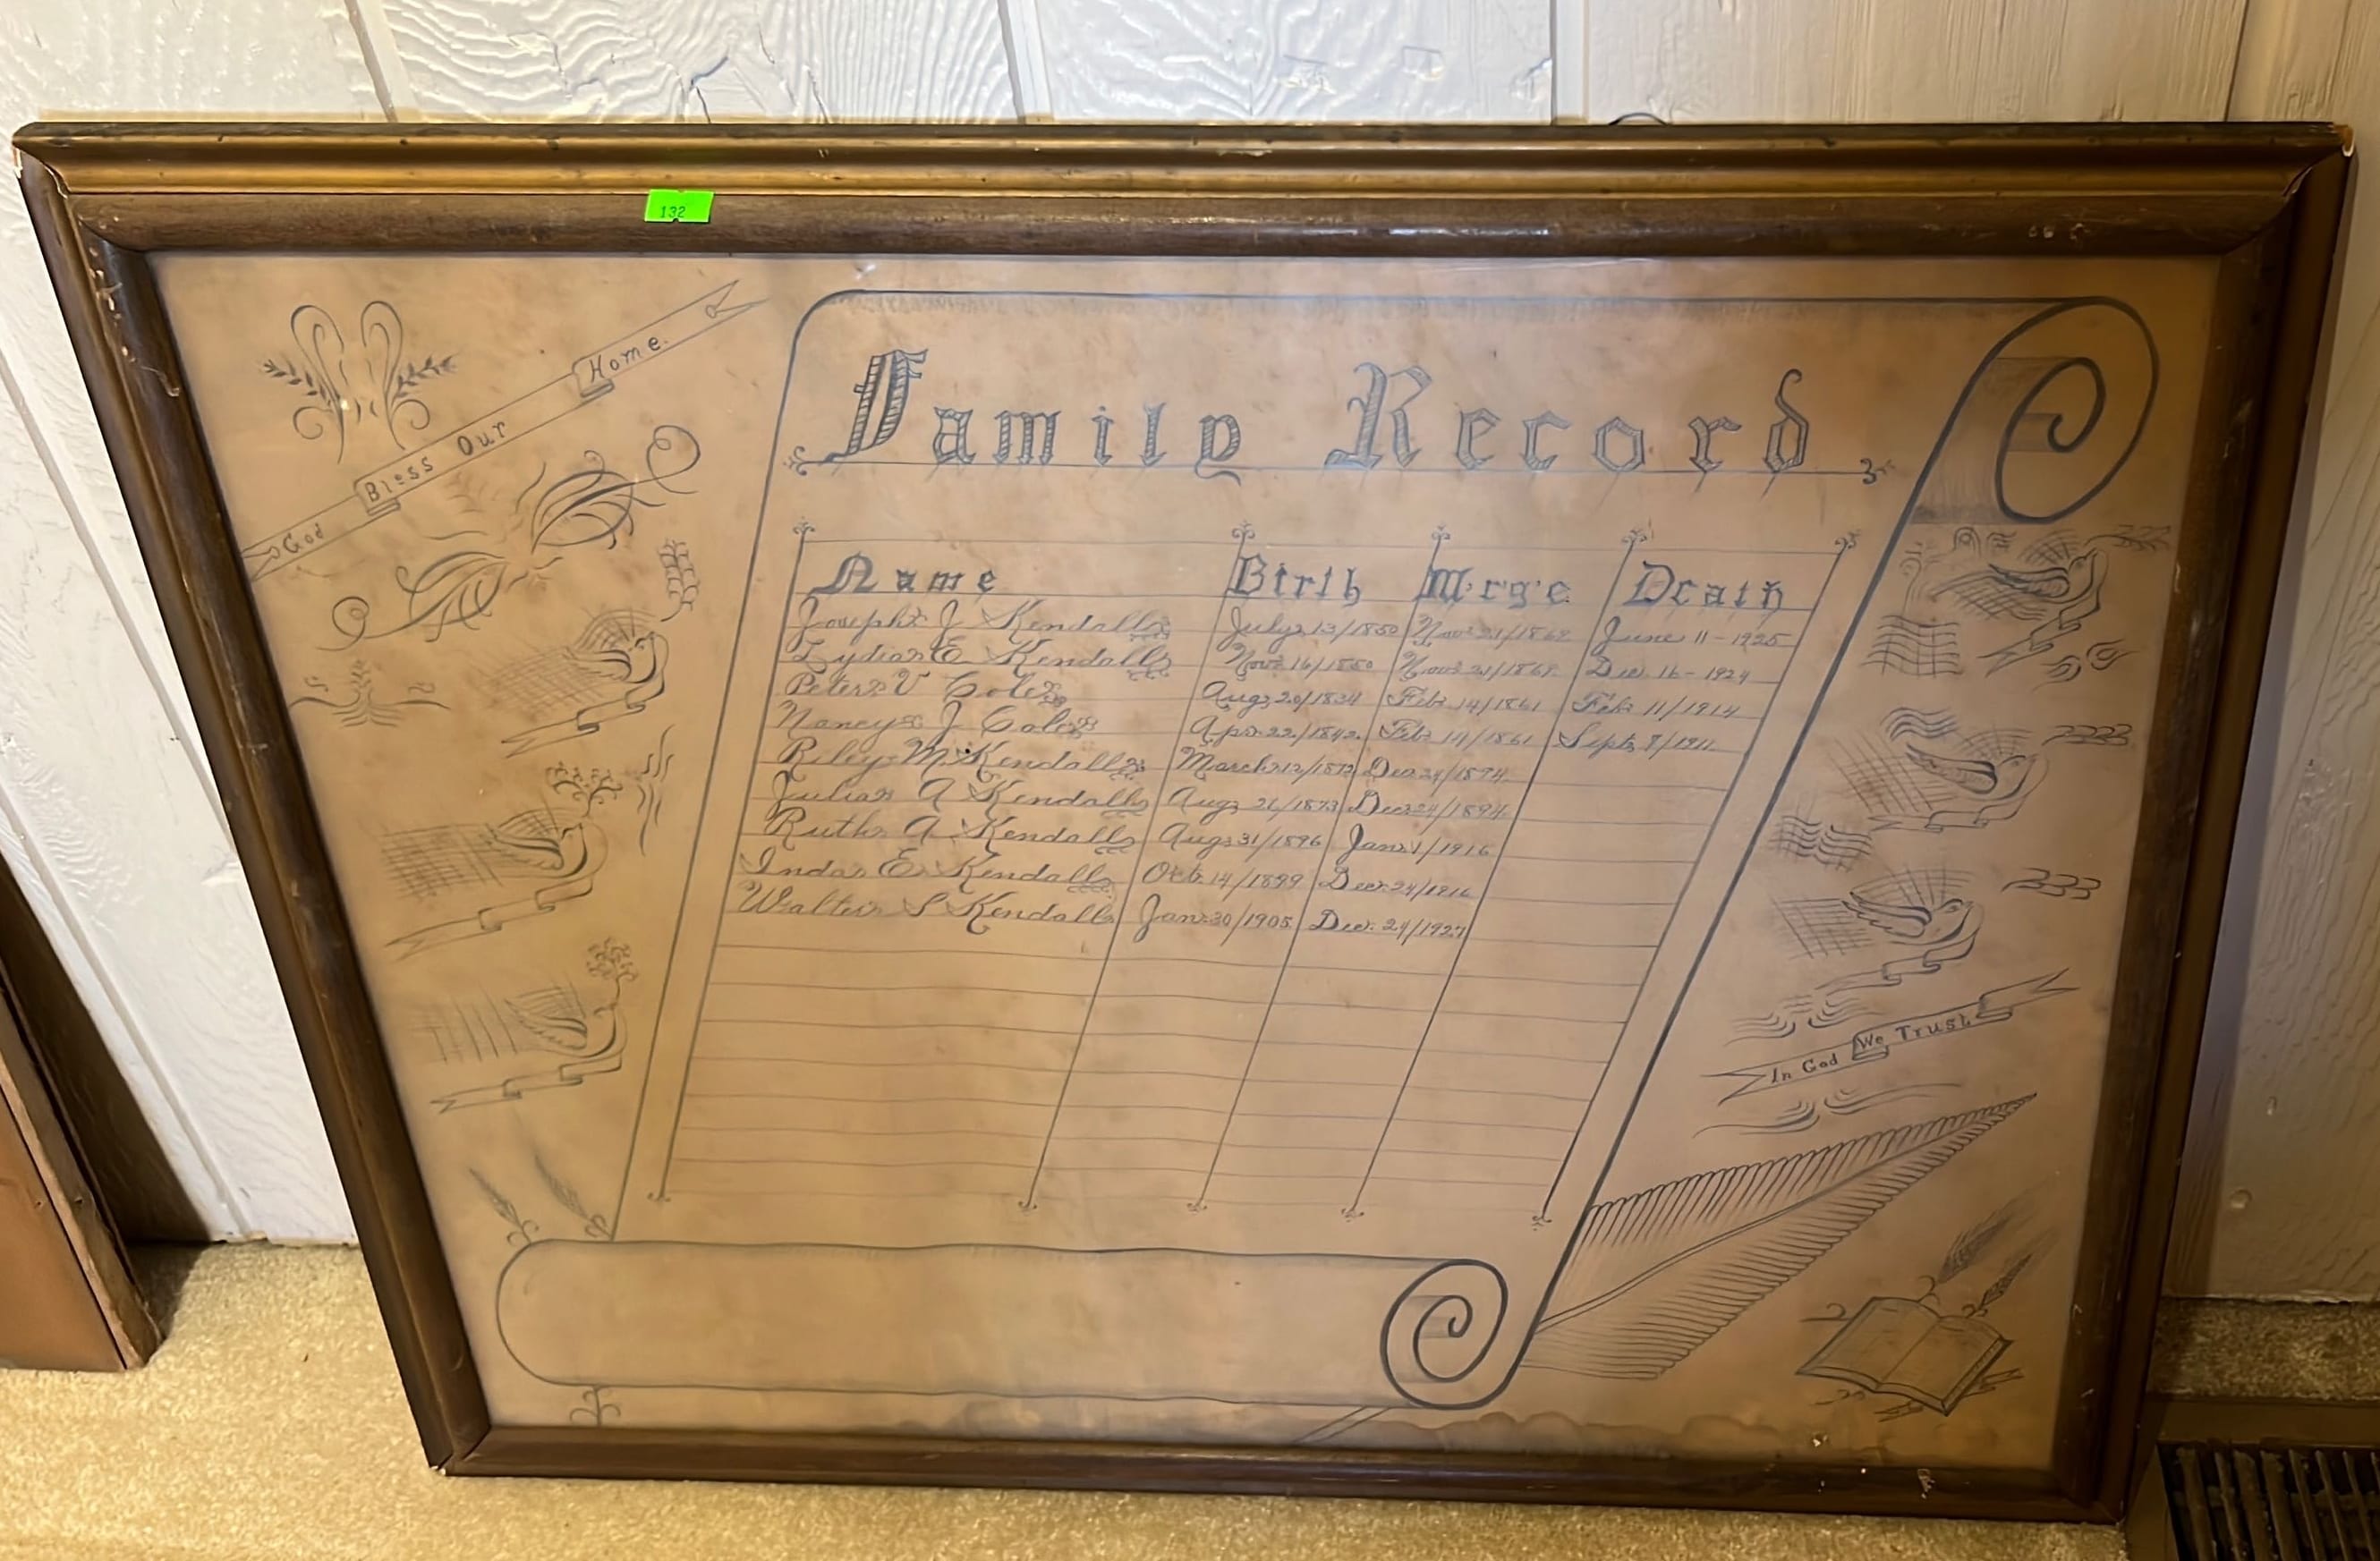 132
God Bless Our Home.
Family Record
Name Birth Mrg'e Death
Joseph J Kendall July 13/1850 Nov. 21/1869 June 11-1925
Lydia E Kendall Nov. 16/1850 Nov. 21/1869 Dec. 16-1924
Peter V Cole Aug. 20/1834 Feb. 14/1861 Feb. 11/1914
Nancy J Cole Apr. 22/1842 Feb. 14/1861 Sept. 8/1911
Riley M. Kendall March 12/1872 Dec. 24/1894
Julia A Kendall Aug. 21/1873 Dec. 24/1894
Ruth A. Kendall Aug. 31/1896 Jan. 1/1916
Inda E. Kendall Oct. 14/1899 Dec. 24/1916
Walter S Kendall Jan. 30/1905 Dec. 24/1927
In God We Trust